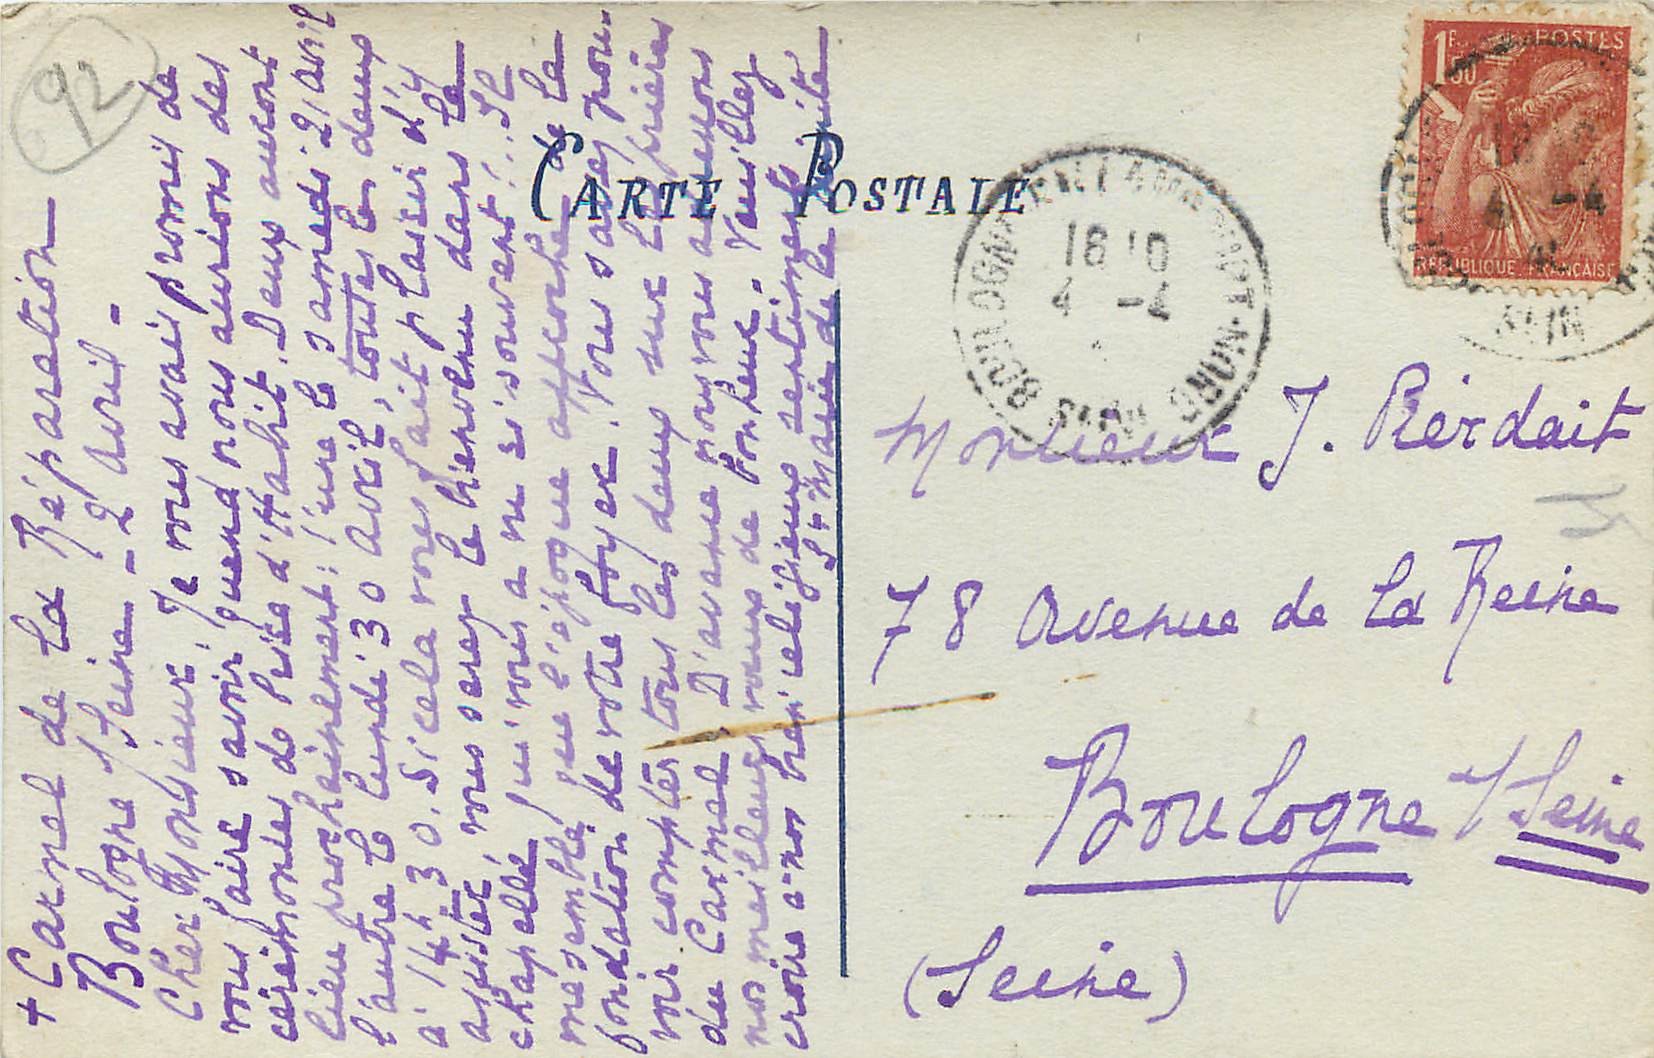 92
+ Carmel de la Réparation
Boulogne s/Seine - 2 avril -
Cher Monsieur, Je vous avais promis de
vous faire savoir quand nous aurions des
cérémonies de Prise d'Habit. Deux auront
lieu prochainement; l'une le samedi 21 avril
l'autre le lundi 30 avril, toutes les deux
à 14h30. Si cela vous fait plaisir d'y
assister, vous serez le bienvenu dans la
chapelle qui vous a vu si souvent!.. Il
me semble que l'époque approche de la
fondation de votre foyer. Vous savez pou-
voir compter tous les deux sur les prières
du Carmel. D'avance nous vous adressons
nos meilleurs vœux de bonheur. Veuillez
croire à nos religieux sentiments
Sr Marie de la
CARTE POSTALE
1F 50 POSTES
RÉPUBLIQUE FRANÇAISE
BOULOGNE-BILLANCOURT-NORD
18 10
4 -4
18 10
4 -4
Monsieur J. Rerdait
78 Avenue de la Reine
Boulogne s/Seine
(Seine)